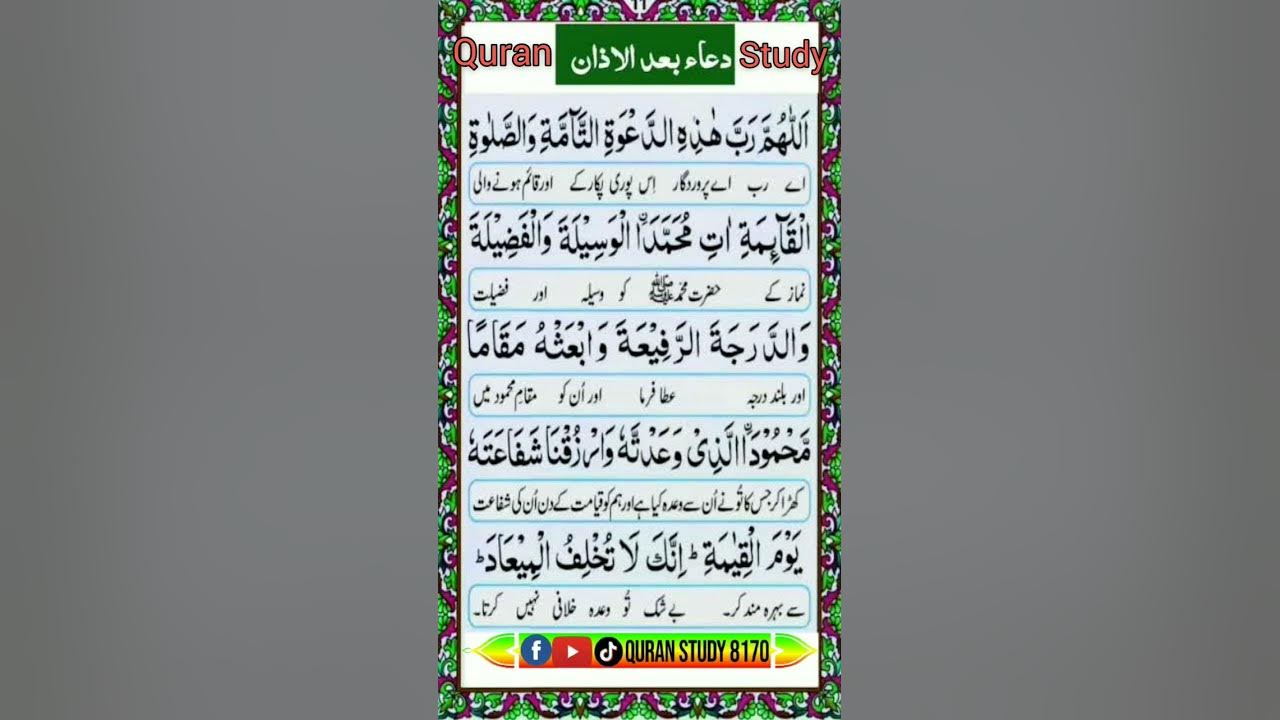 11
Quran دعاء بعد الاذان Study
اَللّٰهُمَّ رَبَّ هٰذِهِ الدَّعْوَةِ التَّآمَّةِ وَالصَّلٰوةِ
اے رب اے پروردگار اِس پوری پکار کے اور قائم ہونے والی
الْقَآئِمَةِ اٰتِ مُحَمَّدَاۨ الْوَسِيْلَةَ وَالْفَضِيْلَةَ
نماز کے حضرت محمد ﷺ کو وسیلہ اور فضیلت
وَالدَّرَجَةَ الرَّفِيْعَةَ وَابْعَثْهُ مَقَامًا
اور بلند درجہ عطا فرما اور اُن کو مقامِ محمود میں
مَّحْمُوْدَاۨ الَّذِیْ وَعَدْتَّهٗ وَارْزُقْنَا شَفَاعَتَهٗ
کھڑا کر جس کا تُو نے اُن سے وعدہ کیا ہے اور ہم کو قیامت کے دن اُن کی شفاعت
يَوْمَ الْقِيٰمَةِ ؕ اِنَّكَ لَا تُخْلِفُ الْمِيْعَادَ ؕ
سے بہرہ مند کر۔ بے شک تُو وعدہ خلافی نہیں کرتا۔
QURAN STUDY 8170